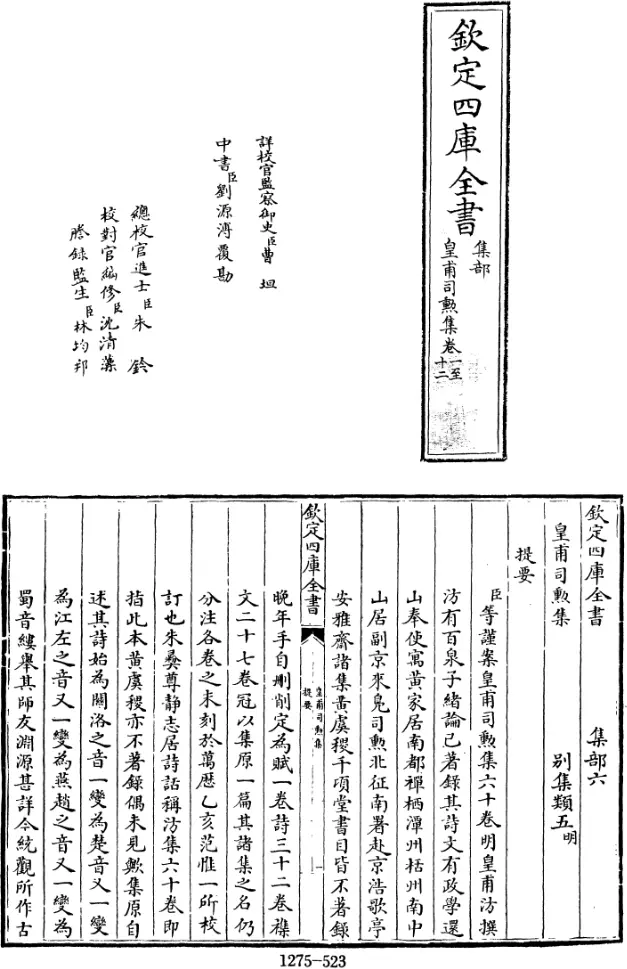 欽定四庫全書
集部
皇甫司勲集卷一至十二
詳校官監察御史臣曹坦
中書臣劉源溥覆勘
總校官進士臣朱鈐
校對官編修臣沈清藻
謄録監生臣林均邦
欽定四庫全書 集部六
皇甫司勲集 别集類五明
提要
臣等謹案皇甫司勲集六十卷明皇甫汸撰
汸有百泉子緒論已著録其詩文有政學還
山奉使寓黄家居南都禪栖澶州栝州南中
山居副京來鳧司勲北征南署赴京浩歌亭
安雅齋諸集黄虞稷千頃堂書目皆不著録
欽定四庫全書
皇甫司勲集
提要
一
晚年手自刪削定為賦一卷詩三十二卷襍
文二十七卷冠以集原一篇其諸集之名仍
分注各卷之末刻於萬歴乙亥范惟一所校
訂也朱彝尊静志居詩話稱汸集六十卷即
指此本黄虞稷亦不著録偶未見歟集原自
述其詩始為關洛之音一變為楚音又一變
為江左之音又一變為燕趙之音又一變為
蜀音縷舉其師友淵源甚詳今統觀所作古
1275-523